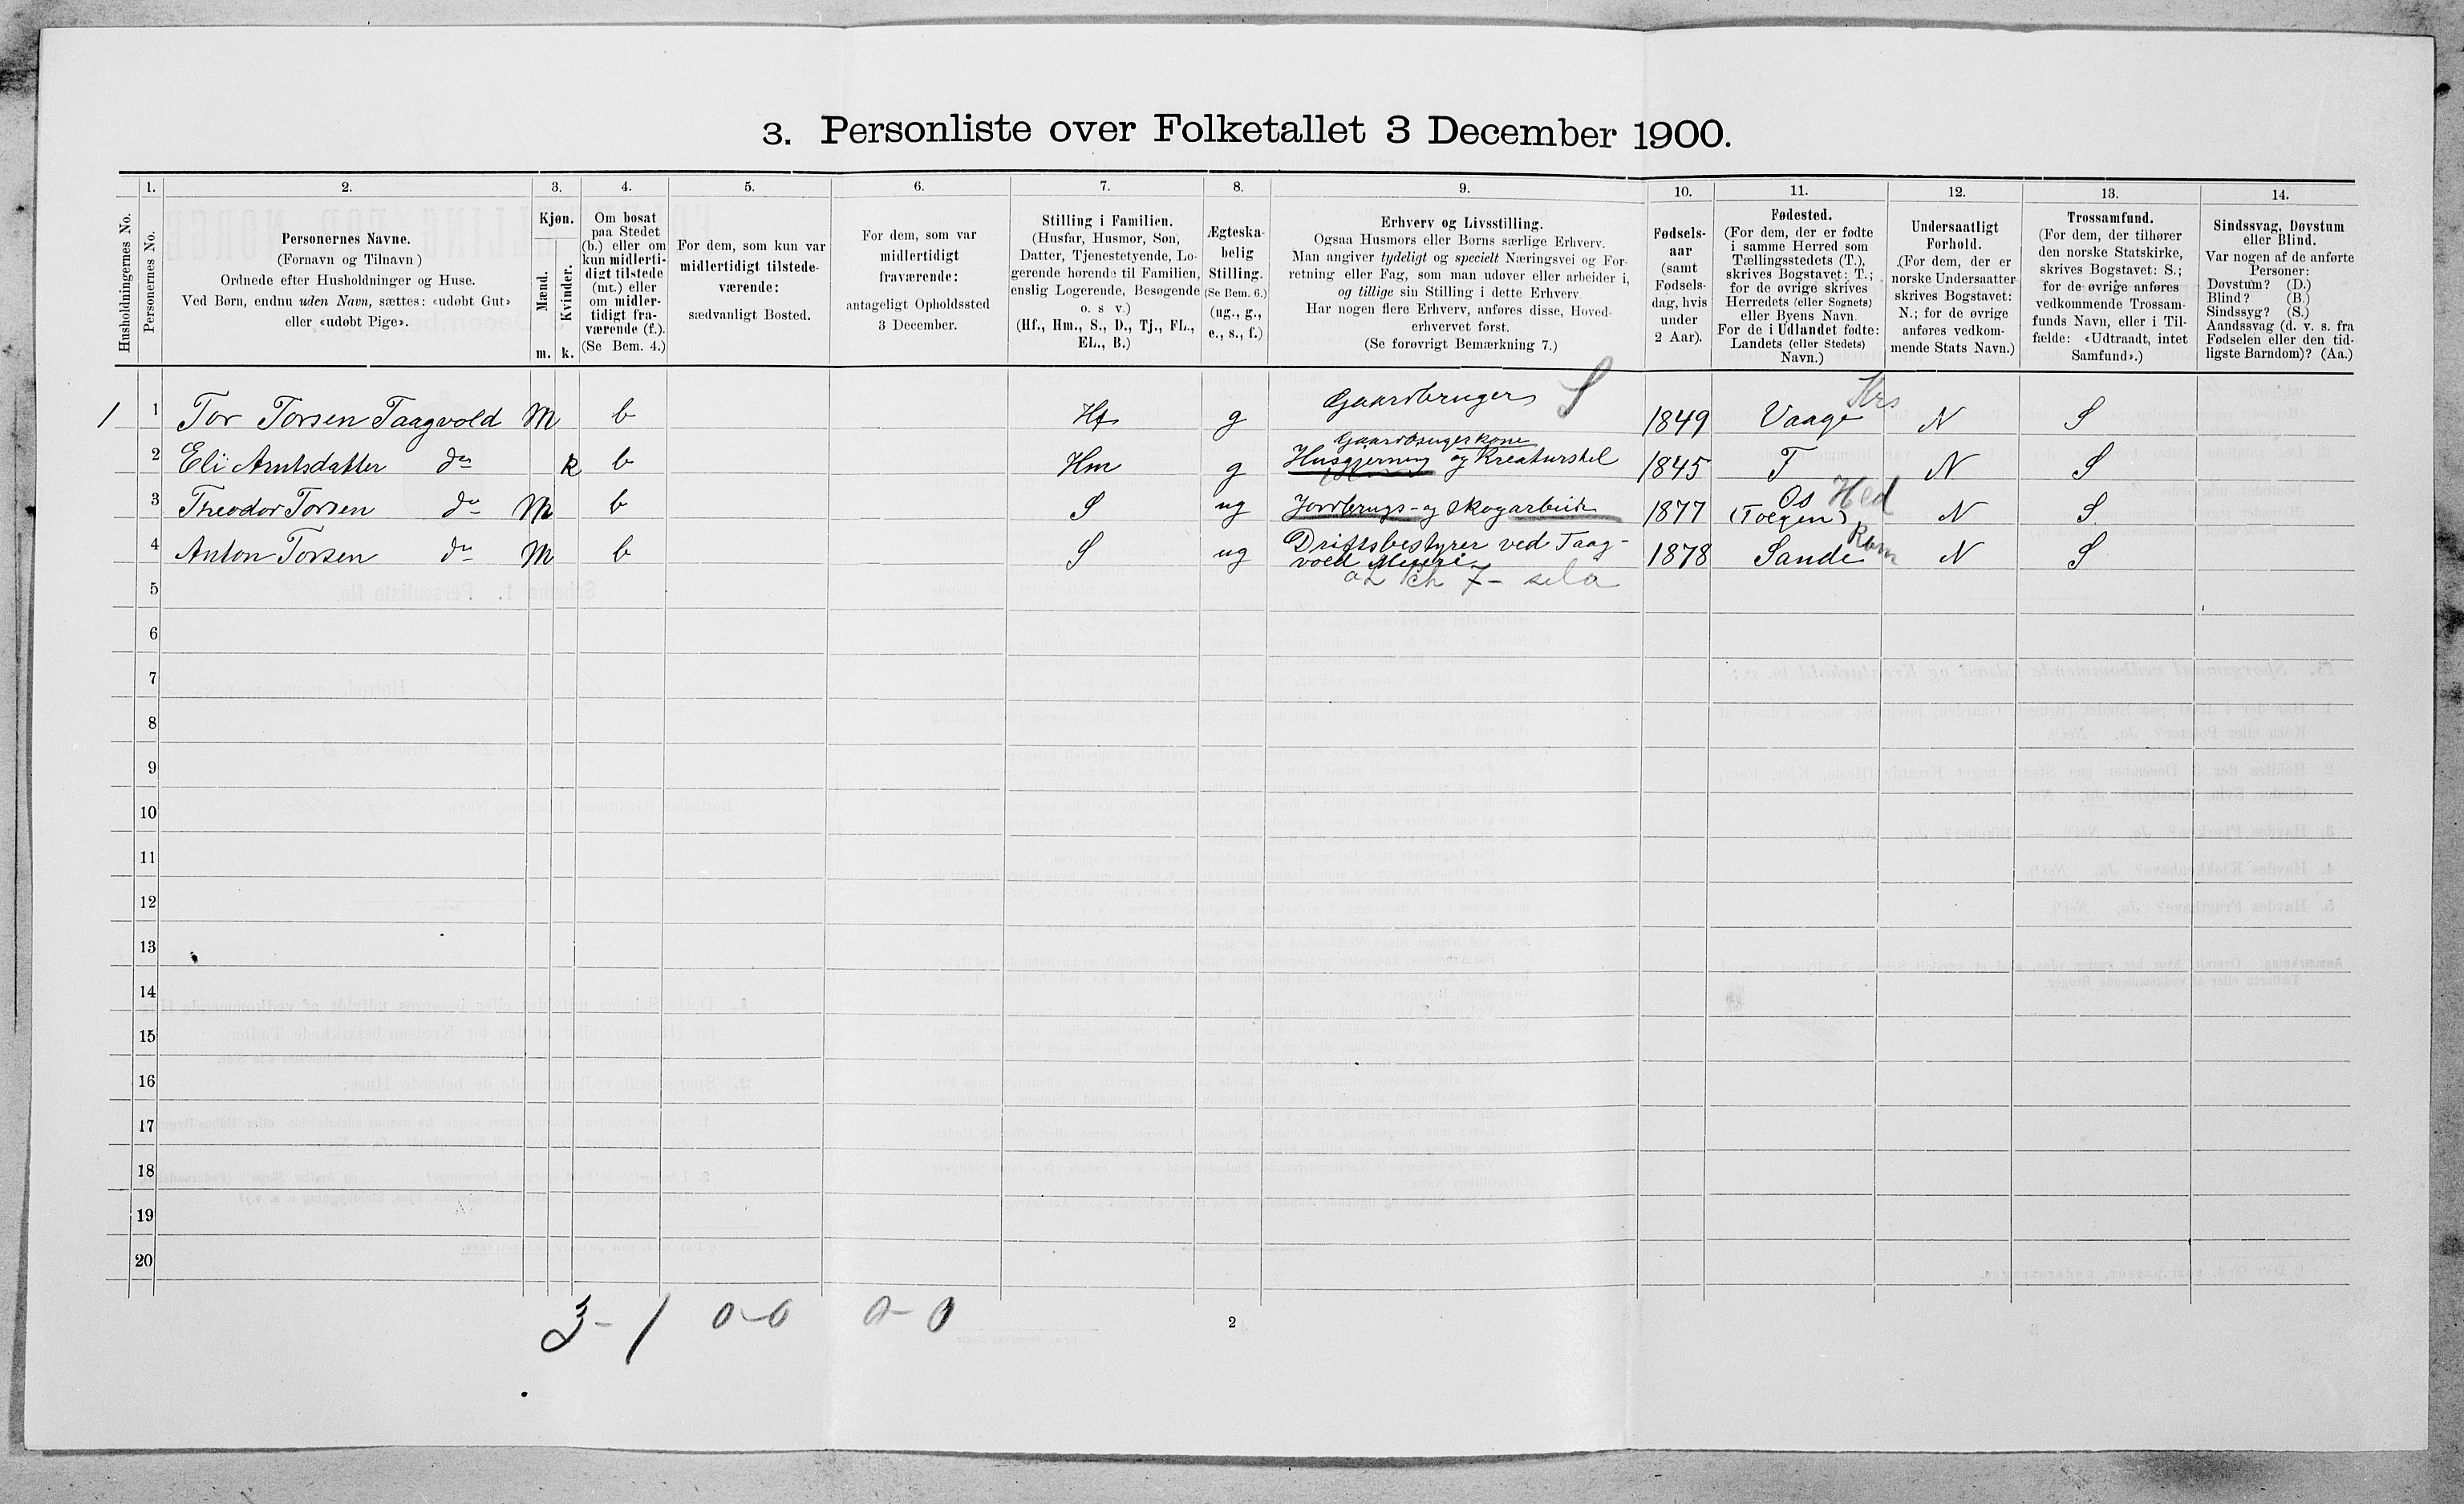 3. Personliste over Folketallet 3 December 1900.
Husholdningernes No.
1.
Personernes No.
2.
Personernes Navne.
(Fornavn og Tilnavn )
Ordnede efter Husholdninger og Huse.
Ved Børn, endnu uden Navn, sættes: «udøbt Gut»
eller «udøbt Pige».
3.
Kjøn.
Mænd.
Kvinder.
m.
k.
4.
Om bosat
paa Stedet
(b.) eller om
kun midlerti-
digt tilstede
(mt.) eller
om midler-
tidigt fra-
værende (f.).
(Se Bem. 4.)
5.
For dem, som kun var
midlertidigt tilstede-
værende:
sædvanligt Bosted.
6.
For dem, som var
midlertidigt
fraværende:
antageligt Opholdssted
3 December.
7.
Stilling i Familien.
(Husfar, Husmor, Søn,
Datter, Tjenestetyende, Lo-
gerende hørende til Familien,
enslig Logerende, Besøgende
o. s v.)
(Hf., Hm., S., D., Tj., FL.,
EL., B.)
8.
Ægteska-
belig
Stilling.
(Se Bem. 6.)
(ug., g.,
e., s., f.)
9.
Erhverv og Livsstilling.
Ogsaa Husmors eller Børns særlige Erhverv.
Man angiver tydeligt og specielt Næringsvei og For-
retning eller Fag, som man udøver eller arbeider i,
og tillige sin Stilling i dette Erhverv.
Har nogen flere Erhverv, anføres disse, Hoved-
erhvervet først.
(Se forøvrigt Bemærkning 7.)
10.
Fødsels-
aar
(samt
Fødsels-
dag, hvis
under
2 Aar).
11.
Fødested.
(For dem, der er fødte
i samme Herred som
Tællingsstedets (T.),
skrives Bogstavet: T.;
for de øvrige skrives
Herredets (eller Sognets)
eller Byens Navn.
For de i Udlandet fødte:
Landets (eller Stedets)
Navn.)
12.
Undersaatligt
Forhold.
(For dem, der er
norske Undersaatter
skrives Bogstavet:
N.; for de øvrige
anføres vedkom-
mende Stats Navn.)
13.
Trossamfund.
(For dem, der tilhører
den norske Statskirke,
skrives Bogstavet: S.;
for de øvrige anføres
vedkommende Trossam-
funds Navn, eller i Til-
fælde: «Udtraadt, intet
Samfund».)
14.
Sindssvag, Døvstum
eller Blind.
Var nogen af de anførte
Personer:
Døvstum? (D.)
Blind? (B.)
Sindssyg? (S.)
Aandssvag (d. v. s. fra
Fødselen eller den tid-
ligste Barndom)? (Aa.)
1 1 Tor Torsen Taagvold M b Hf g Gaardbruger S 1849 Vaage Krs N S
Gaardbrugerkone
2 Eli Arntsdatter do k b Hm g Husgjerning og Kreaturstel 1845 T N S
3 Theodor Torsen do M b S ug Jordbrugs- og Skogarbeide 1877 Os (Tolgen) Hed N S
4 Anton Torsen do M b S ug Driftsbestyrer ved Taag-
vold Meieri 1878 Sande Rom N S
5
6
7
8
9
10
11
12
13
14
15
16
17
18
19
20
3 - 1 0-0 0-0
2